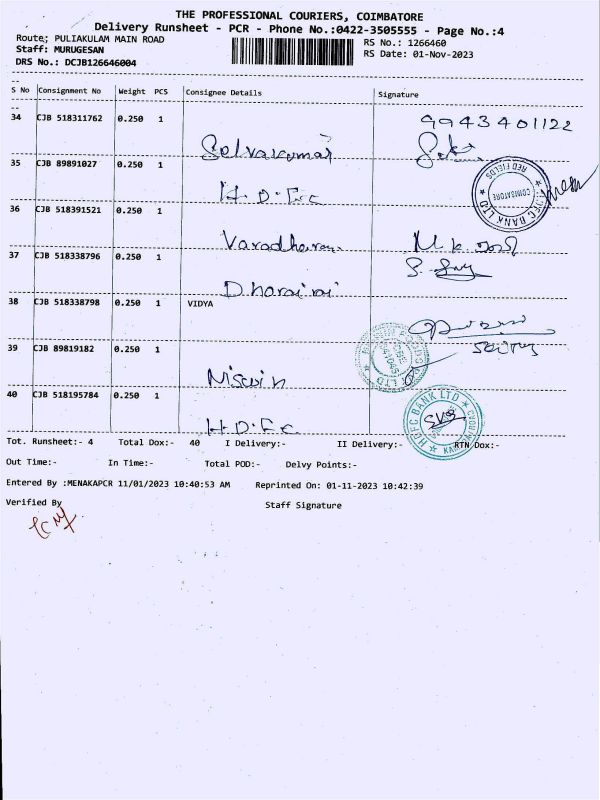 THE PROFESSIONAL COURIERS, COIMBATORE
Delivery Runsheet - PCR - Phone No.:0422-3505555 - Page No.:4
Route: PULIAKULAM MAIN ROAD RS No.: 1266460
Staff: MURUGESAN RS Date: 01-Nov-2023
DRS No.: DCJB126646004
S No Consignment No Weight PCS Consignee Details Signature
34 CJB 518311762 0.250 1 Selvakumar 9943401122
35 CJB 89891027 0.250 1 H.D.F.C
HDFC BANK LTD RED FIELDS COIMBATORE
36 CJB 518391521 0.250 1 Varadharan M.K.
37 CJB 518338796 0.250 1 Dharairaj S.
38 CJB 518338798 0.250 1 VIDYA
39 CJB 89819182 0.250 1
40 CJB 518195784 0.250 1 H.D.F.C
HDFC BANK LTD
Tot. Runsheet:- 4 Total Dox:- 40 I Delivery:- II Delivery:- RTN Dox:-
Out Time:- In Time:- Total POD:- Delvy Points:-
Entered By :MENAKAPCR 11/01/2023 10:40:53 AM Reprinted On: 01-11-2023 10:42:39
Verified By Staff Signature